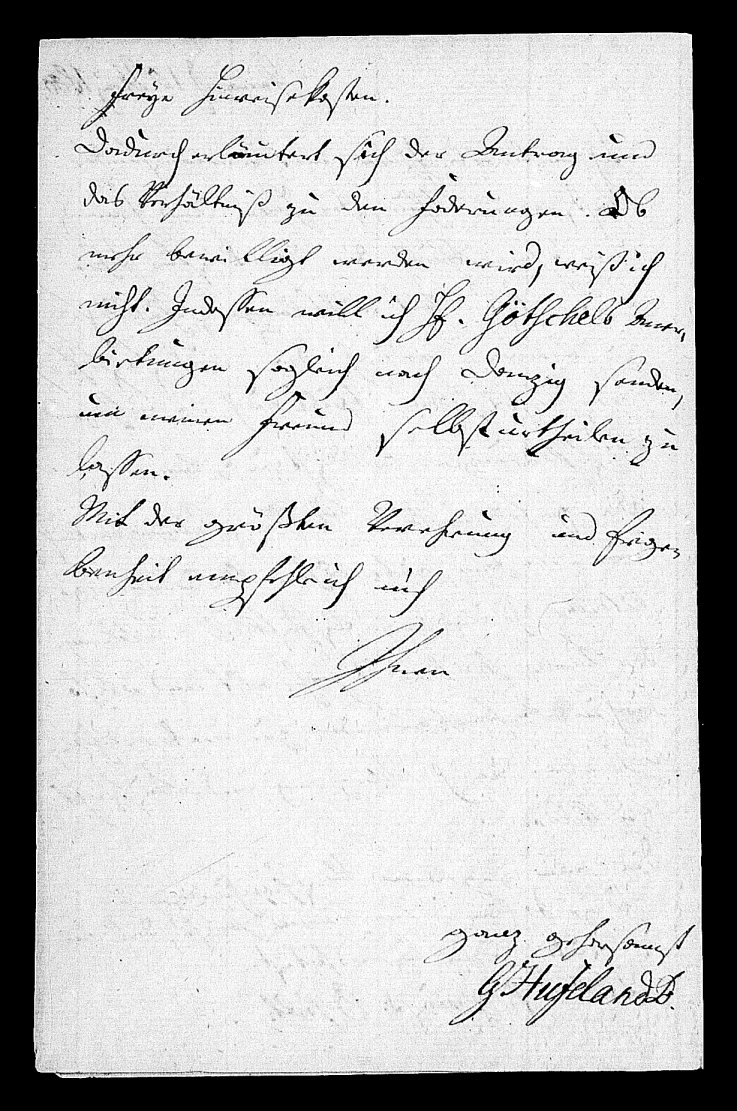 Freye Hinreisekosten.
Dadurch erläutert sich der Antrag und
das Verhältniß zu den Foderungen. Ob
mehr bewilligt werden wird, weiß ich
nicht. Indessen will ich H. Götschels Aner-
bietungen sogleich nach Danzig senden,
um meinen Freund selbst urtheilen zu
lassen.
Mit der größten Verehrung und Ergen
benheit empfehle ich mich
Ihnen
ganz gehorsamst
G Hufeland D.